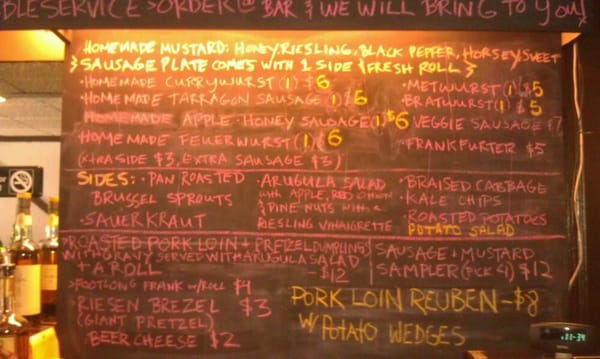 BLESERVICE > ORDER @ BAR & WE WILL BRING TO YOU!
HOMEMADE MUSTARD: HONEY, RIESLING, BLACK PEPPER, HORSEY, SWEET
SAUSAGE PLATE COMES WITH 1 SIDE & FRESH ROLL
• HOMEMADE CURRYWURST (1) $6
• HOMEMADE TARRAGON SAUSAGE (1) $6
HOMEMADE APPLE-HONEY SAUSAGE (1) $6
HOMEMADE FEUERWURST (1) $6
(XTRA SIDE $3, EXTRA SAUSAGE $3)
• METWURST (1) $5
• BRATWURST (1) $5
VEGGIE SAUSAGE $7
• FRANKFURTER $5
SIDES: • PAN ROASTED
BRUSSEL SPROUTS
• SAUERKRAUT
• ARUGULA SALAD
WITH APPLE, RED ONION
& PINE NUTS WITH
RIESLING VINAIGRETTE
• BRAISED CABBAGE
• KALE CHIPS
• ROASTED POTATOES
POTATO SALAD
> ROASTED PORK LOIN + PRETZEL DUMPLINGS
WITH GRAVY SERVED WITH ARUGULA SALAD
+ A ROLL - $12
> FOOTLONG FRANK W/ROLL $4
> RIESEN BREZEL $3
(GIANT PRETZEL)
BEER CHEESE $2
SAUSAGE + MUSTARD
SAMPLER (PICK 4) $12
PORK LOIN REUBEN - $8
W/ POTATO WEDGES